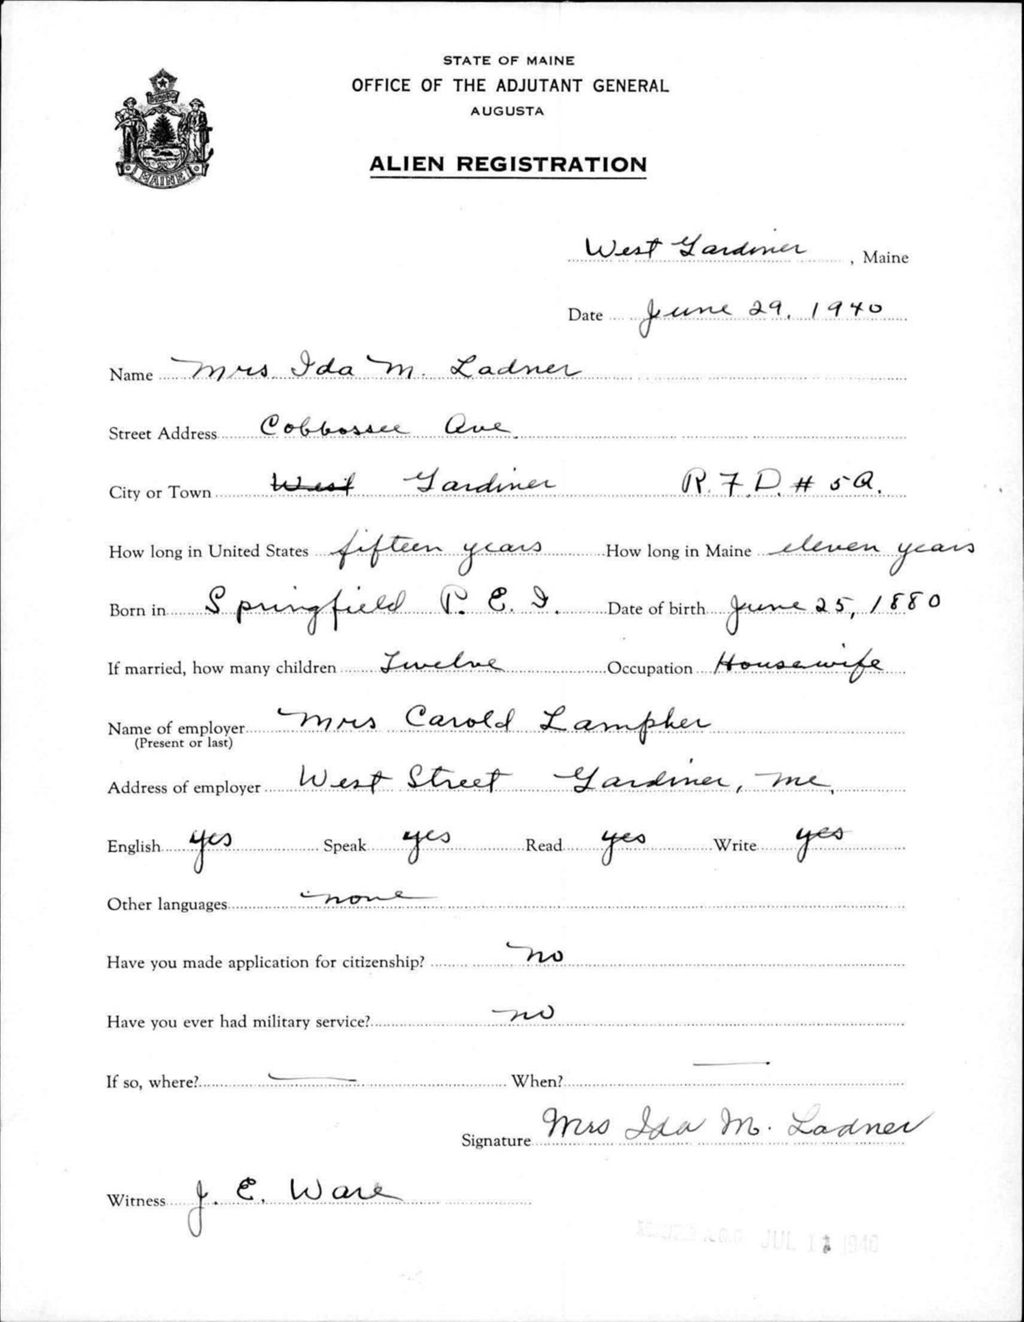 STATE OF MAINE
OFFICE OF THE ADJUTANT GENERAL
AUGUSTA
ALIEN REGISTRATION
MAINE
West Gardiner, Maine
Date June 29, 1940
Name Mrs Ida M. Ladner
Street Address Cobbossee Ave.
City or Town West Gardiner R.F.D. # 5A.
How long in United States fifteen years How long in Maine eleven years
Born in Springfield P. E. I. Date of birth June 25, 1880
If married, how many children Twelve Occupation Housewife
Name of employer Mrs Carold Lampher
(Present or last)
Address of employer West Street Gardiner, Me.
English yes Speak yes Read yes Write yes
Other languages none
Have you made application for citizenship? no
Have you ever had military service? no
If so, where? — When? —
Signature Mrs Ida M. Ladner
Witness J. E. Ware
JUL 1940